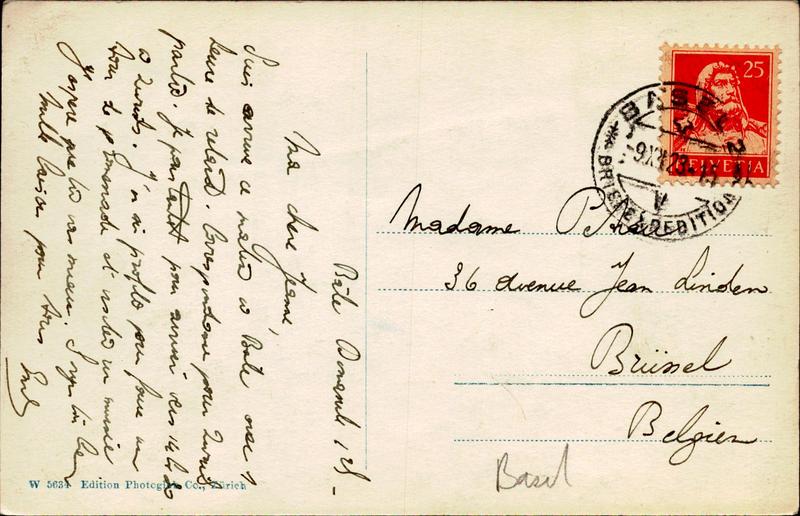 Bâle
Ma chère Jeanne,
Suis arrivé ce matin à Bâle avec 1
heure de retard. Correspondance pour Zurich
partie. Je pars tantôt pour arriver vers
à Zurich. J'en ai profité pour faire un
tour de promenade et visiter un musée
J'espère que tu vas mieux.
Mille baisers pour tous
W 5634 Edition Photoglob Co., Zürich
25
HELVETIA
BASEL 2
BRIEFEXPEDITION
Madame
36 avenue Jean Linden
Brüssel
Belgien
Basel